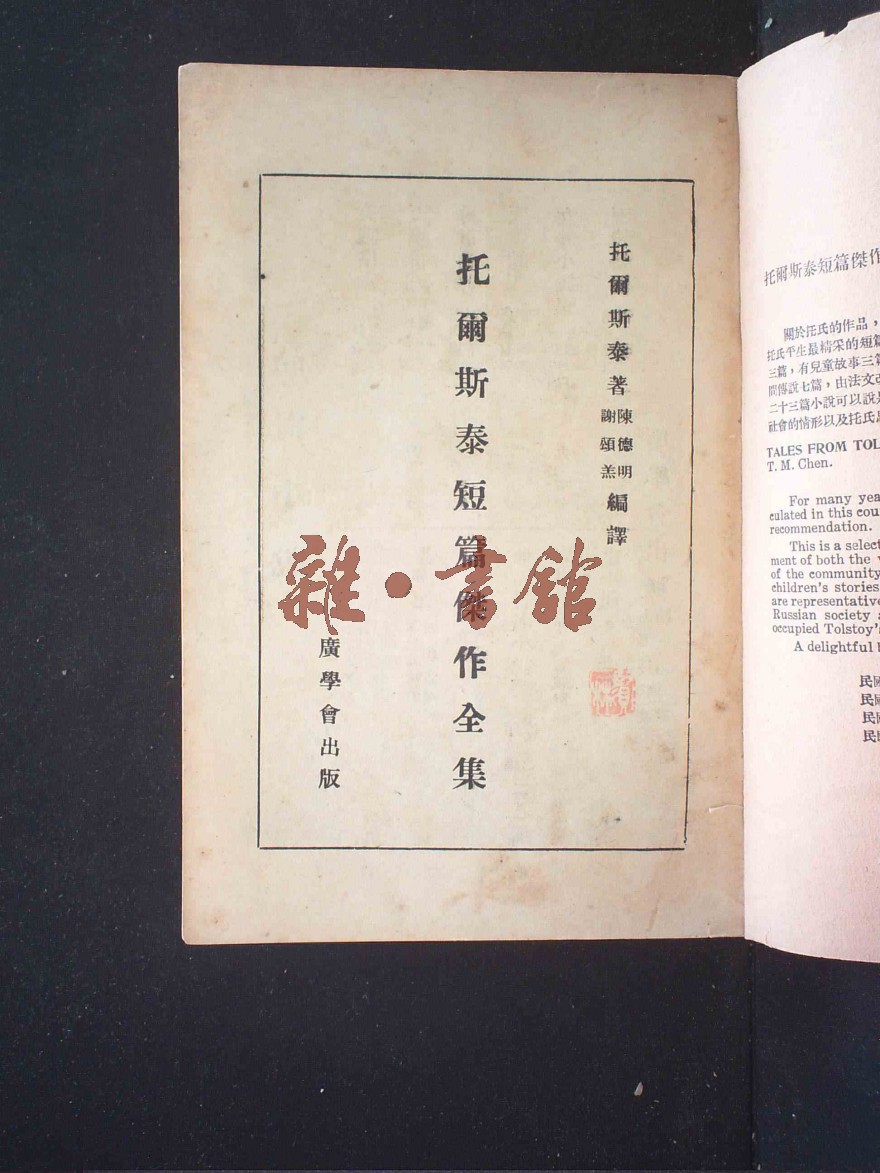 托爾斯泰著 陳德明 謝頌羔 編譯
托爾斯泰短篇傑作全集
廣學會出版
雜·書館
托爾斯泰短篇傑作
關於托氏的作品，
托氏平生最精采的短篇
三篇，有兒童故事三篇
間傳說七篇，由法文改
二十三篇小說可以說是
社會的情形以及托氏
TALES FROM TOL
T. M. Chen.
For many yea
culated in this cou
recommendation.
This is a select
ment of both the
of the community
children's stories
are representative
Russian society
occupied Tolstoy's
A delightful
民
民
民
民